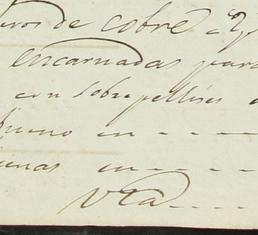 de cobre
encarnadas para
con Sobrepellises
bueno en - - - -
en - - - -
Vta - - - -